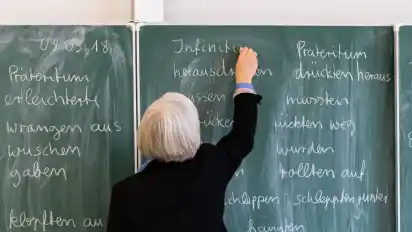 09.05.18
Präteritum
erleichterte
wrangen aus
wuschen
gaben
klopften au
Infinitiv
herausdrücken
issen
ücke
schleppen
hängen
Präteritum
drückten heraus
müssten
rückten weg
wurden
rollten auf
schleppten runter